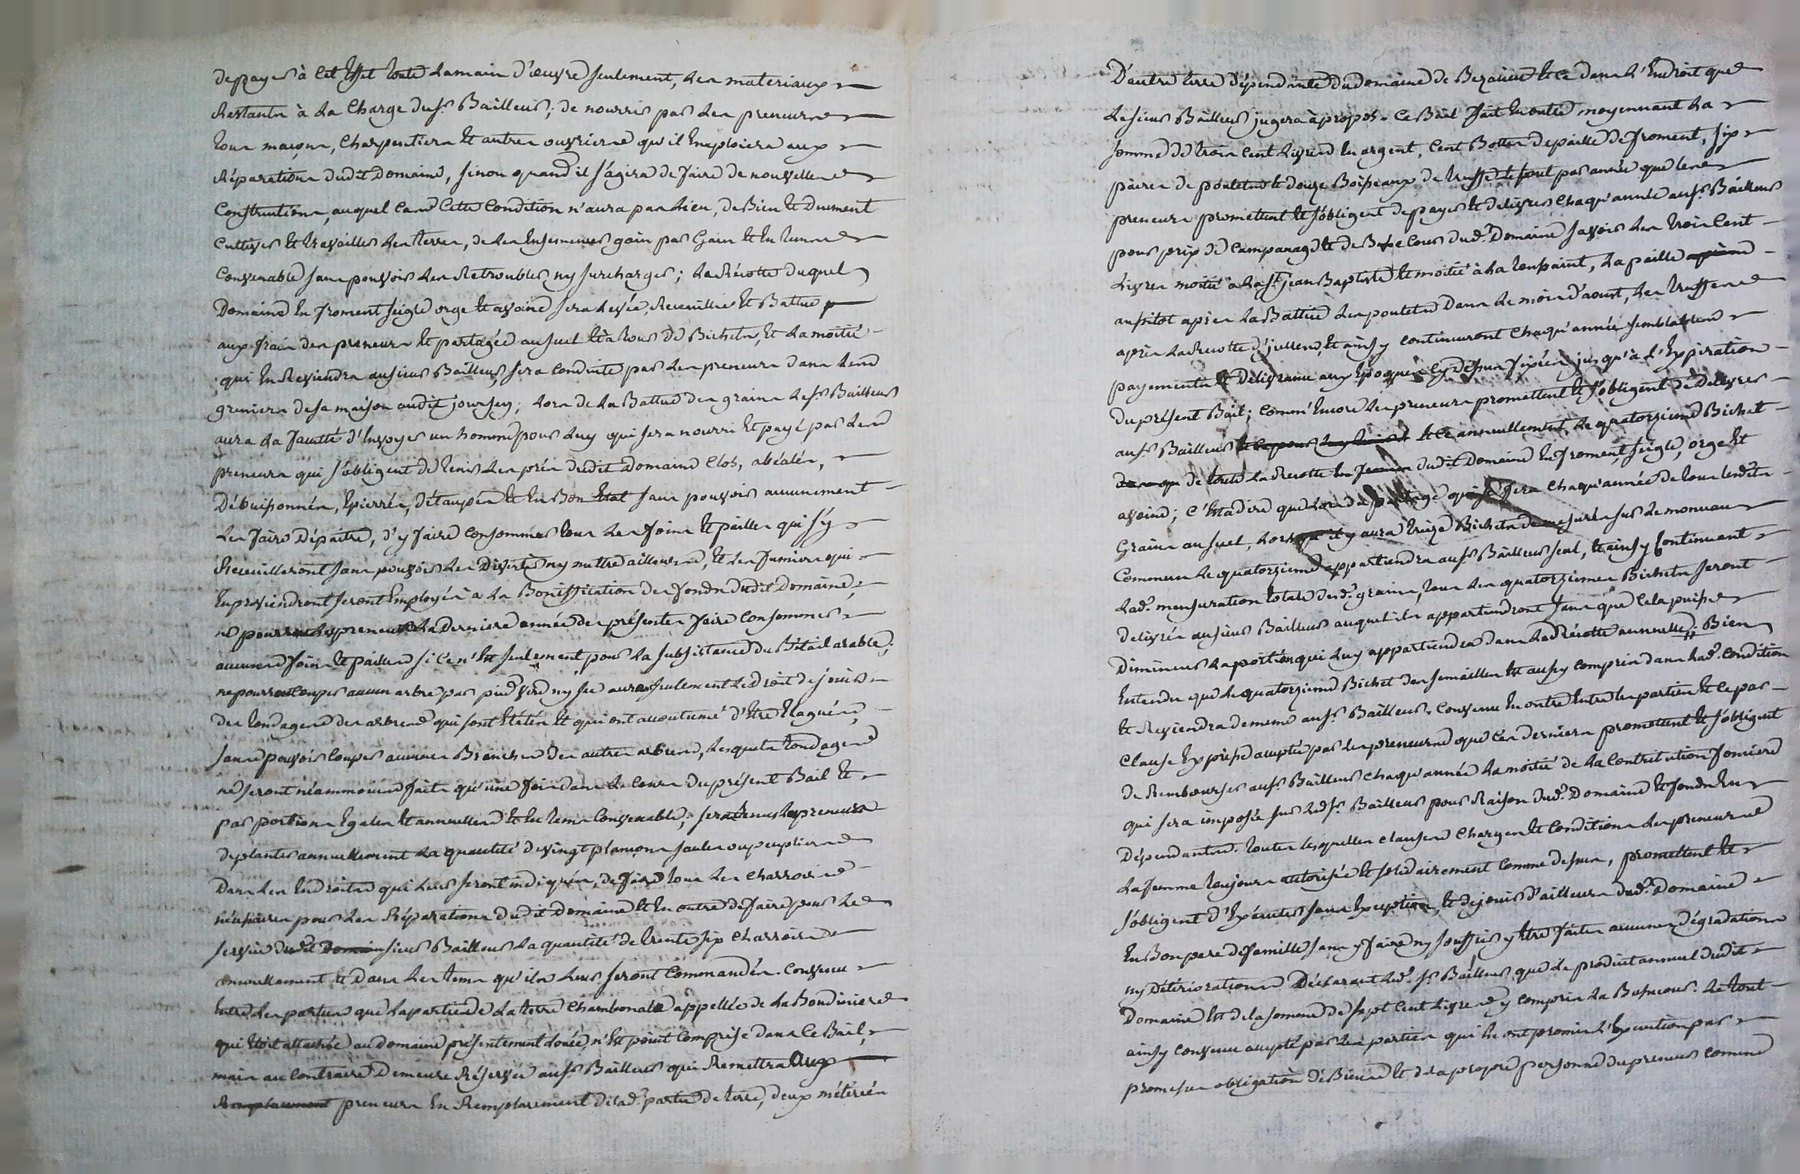 de payer à cet effet toute la main d'œuvre seulement, les materiaux
Restants à la Charge du sr. Bailleur; de nourrir par les preneurs
tous maçons, Charpentiers et autres ouvriers qu'il Employera aux
Réparations dudit Domaine, sinon quand il s'agira de faire de nouvelles
Constructions, auquel cas cette Condition n'aura pas lieu, de Bien et Duement
Cultiver et travailler les terres, de les Ensemencer gain par Gain et En tems
Convenable sans pouvoir les Retroubler ny surcharger; la Récolte duquel
Domaine En froment seigle orge et avoine sera Levée, Recueillie et Battue
aux frais des preneurs et partagée au suel et à tour de Bichets, et la moitié
qui En Reviendra au sieur Bailleur, sera Conduite par les preneurs dans les
greniers de sa maison audit; lors de la Battue des grains le sr. Bailleur
aura la faculté d'Envoyer un homme pour luy qui sera nourri et payé par les
preneurs qui s'obligent de tenir les prés dudit Domaine Clos,
Débuissonnés, Epierrés, détaupés et En Bon Etat sans pouvoir aucunement
les faire Dépaitre, d'y faire Consommer tous les foins et pailles qui s'y
Recueilleront sans pouvoir les Divertir ny mettre ailleurs, et les fumiers qui
En proviendront seront Employés à la Bonification des fonds dudit Domaine,
ne pourront les preneurs la derniere année des présentes faire Consommer
aucuns foins et pailles si Ce n'Est seulement pour la subsistance du Bétail arable;
ne pourront Couper aucun arbre par pied, vif ny sec auront seulement le Droit de jouir
des tondages des arbres qui sont Etétés et qui ont accoutumé d'Etre Elagués,
sans pouvoir Couper aucunes Branches des autres arbres, lesquels tondages
ne seront néammoins faits qu'une fois dans le Cours du présent Bail et
par portions Egales et annuelles et En tems Convenable; seront tenus les preneurs
de planter annuellement la quantité de vingt plançons saules ou peupliers
Dans les Endroits qui leur seront indiqués, de faire tous les Charrois
nécessaires pour les Réparations dudit Domaine et En outre de faire pour le
service dudit sieur Bailleur la quantité de trente six Charrois
annuellement et Dans les tems qu'ils leur seront Commandés. Convenu
Entre les parties que la partie de la terre Chambonale appellée de la Boudiniere
qui Etoit attachée au domaine présentement donée, n'Est point Comprise dans Ce Bail,
mais au Contraire Demeure Réservée au sr. Bailleur qui Remettra Aux
preneurs En Remplacement de lad. partie de terre, deux métérées
D'autre terre dépendante du domaine de et ce dans l'Endroit que
le sieur Bailleur jugera à propos. Ce Bail fait En outre moyennant la
somme de trois Cent livres En argent, Cent Bottes de paille de froment, six
paires de poulets et douze Boisseaux de truffes le tout par année que les
preneurs promettent et s'obligent de payer et delivrer Chaqu'année au sr. Bailleur
pour prix de Campanage et de Basse Cour dud. Domaine savoir les trois Cent
livres moitié à la st. jean Baptiste et moitié à la toussaint, la paille
aussitot après la Battue les poulets Dans le mois d'aoust, les truffes
après la Recolte d'jcelles, et ainsy Continueront Chaqu'année semblables
payements et Délivrance aux Epoques Cy dessus fixées jusqu'à l'Expiration
du présent Bail; Comm'Encore les preneurs promettent et s'obligent de Délivrer
au sr. Bailleur et Ce annuellement le quatorzieme Bichet
de toute la Recolte dudit Domaine En froment, seigle, orge et
avoine; C'Est a dire que lors du partage qui se fera Chaqu'année de tous lesdits
Grains au suel, lorsqu'il y aura treize Bichets de mesurés sur le monceau
Commun le quatorzieme appartiendra au sr. Bailleur seul, et ainsy Continuant
lad. mensuration totale dud. grains, tous les quatorziemes Bichets seront
delivrés au sieur Bailleur auquel ils appartiendront sans que Cela puisse
Diminuer la portion qui luy appartiendra dans la Récolte annuelle; Bien
Entendu que le quatorzieme Bichet des semailles Est aussy Compris dans lad. Condition
et Reviendra de meme au sr. Bailleur. Convenu En outre Entre les parties et Ce par
Clause Expresse acceptée par les preneurs que Ces derniers promettent et s'obligent
de Rembourser au sr. Bailleur Chaqu'année la moitié de la Contribution fonciere
qui sera imposée sur led. sr. Bailleur pour Raison dud. Domaine et fonds En
Dépendants. toutes lesquelles Clauses Charges et Conditions les preneurs
la femme toujours autorisée et solidairement Comme dessus, promettent et
s'obligent d'Exécuter sans Exception, et de jouir d'ailleurs dud. Domaine
En Bon pere de famille sans y faire ny souffrir y Etre faites aucunes dégradations
ny Déteriorations Déclarant led. sr. Bailleur que le produit annuel dudit
Domaine Est de la somme de sept Cent livres y Compris la Bassecour. Le tout
ainsy Convenu accepté par les parties qui En ont promis l'Execution par
promesse obligation de Biens et de la propre personne du preneur Comme